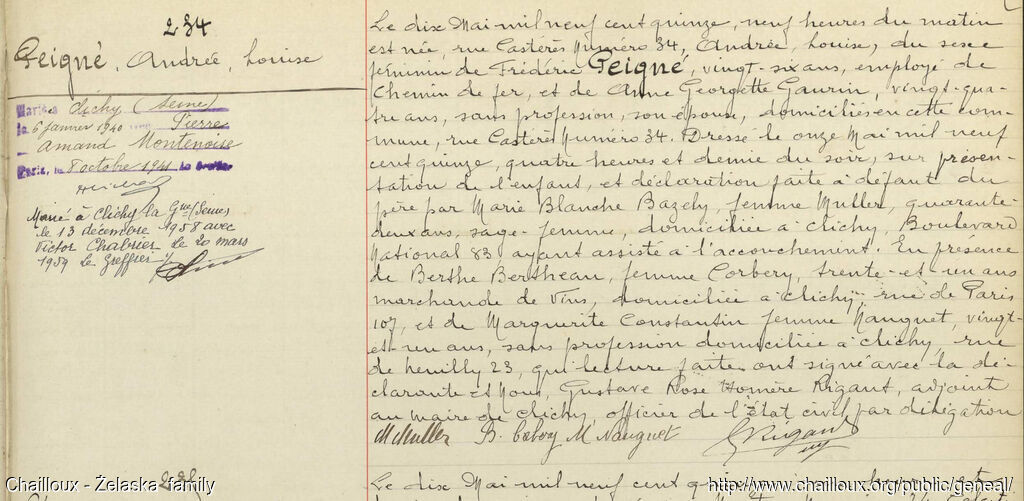 234
Peigné, Andrée, Louise
Marié à Clichy (Seine)
le 6 janvier 1940 avec Pierre
Amand Montenoise
Paris, le 8 octobre 1941 Le Greffier
Marié à Clichy la Gne/Seine
le 13 décembre 1958 avec
Victor Chabrier le 20 mars
1959 le Greffier
Le dix Mai mil neuf cent quinze, neuf heures du matin
est née, rue Castérès Numéro 34, Andrée, Louise, du sexe
féminin de Frédéric Peigné, vingt-six ans, employé de
Chemin de fer, et de Anne Georgette Gaurin, vingt-qua-
tre ans, sans profession, son épouse, domiciliés en cette com-
mune, rue Castérès Numéro 34. Dressé le onze Mai mil neuf
cent quinze, quatre heures et demie du soir, sur présen-
tation de l'enfant, et déclaration faite à défaut du
père par Marie Blanche Bazely, femme Muller, quarante-
deux ans, sage-femme, domiciliée à Clichy, Boulevard
National 83 ayant assisté à l'accouchement. En présence
de Berthe Bertheau, femme Corbery, trente-et-un ans
marchande de Vins, domiciliée à Clichy, rue de Paris
107, et de Marguerite Constantin femme Nauguet, vingt-
et-un ans, sans profession domiciliée à Clichy, rue
de Neuilly 23, qui lecture faite ont signé avec la dé-
clarante et Nous, Gustave Rose Homère Rigant, adjoint
au maire de Clichy, officier de l'état civil par délégation
M Muller B. M Nauguet GRigant
Le dix Mai mil neuf cent quinze
Chailloux - Żelaska family
http://www.chailloux.org/public/geneal/